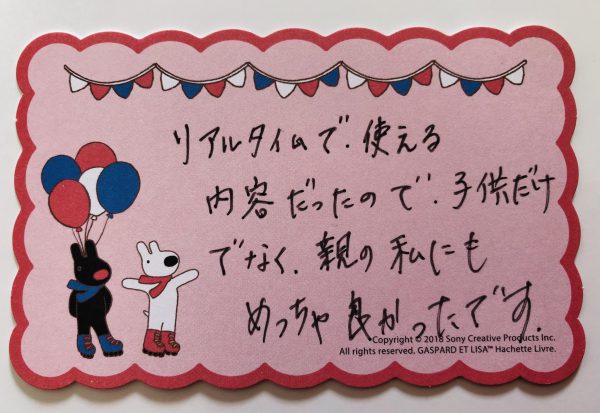 リアルタイムで、使える
内容だったので、子供だけ
でなく、親の私にも
めっちゃ良かったです.
Copyright © 2018 Sony Creative Products Inc.
All rights reserved. GASPARD ET LISA™ Hachette Livre.